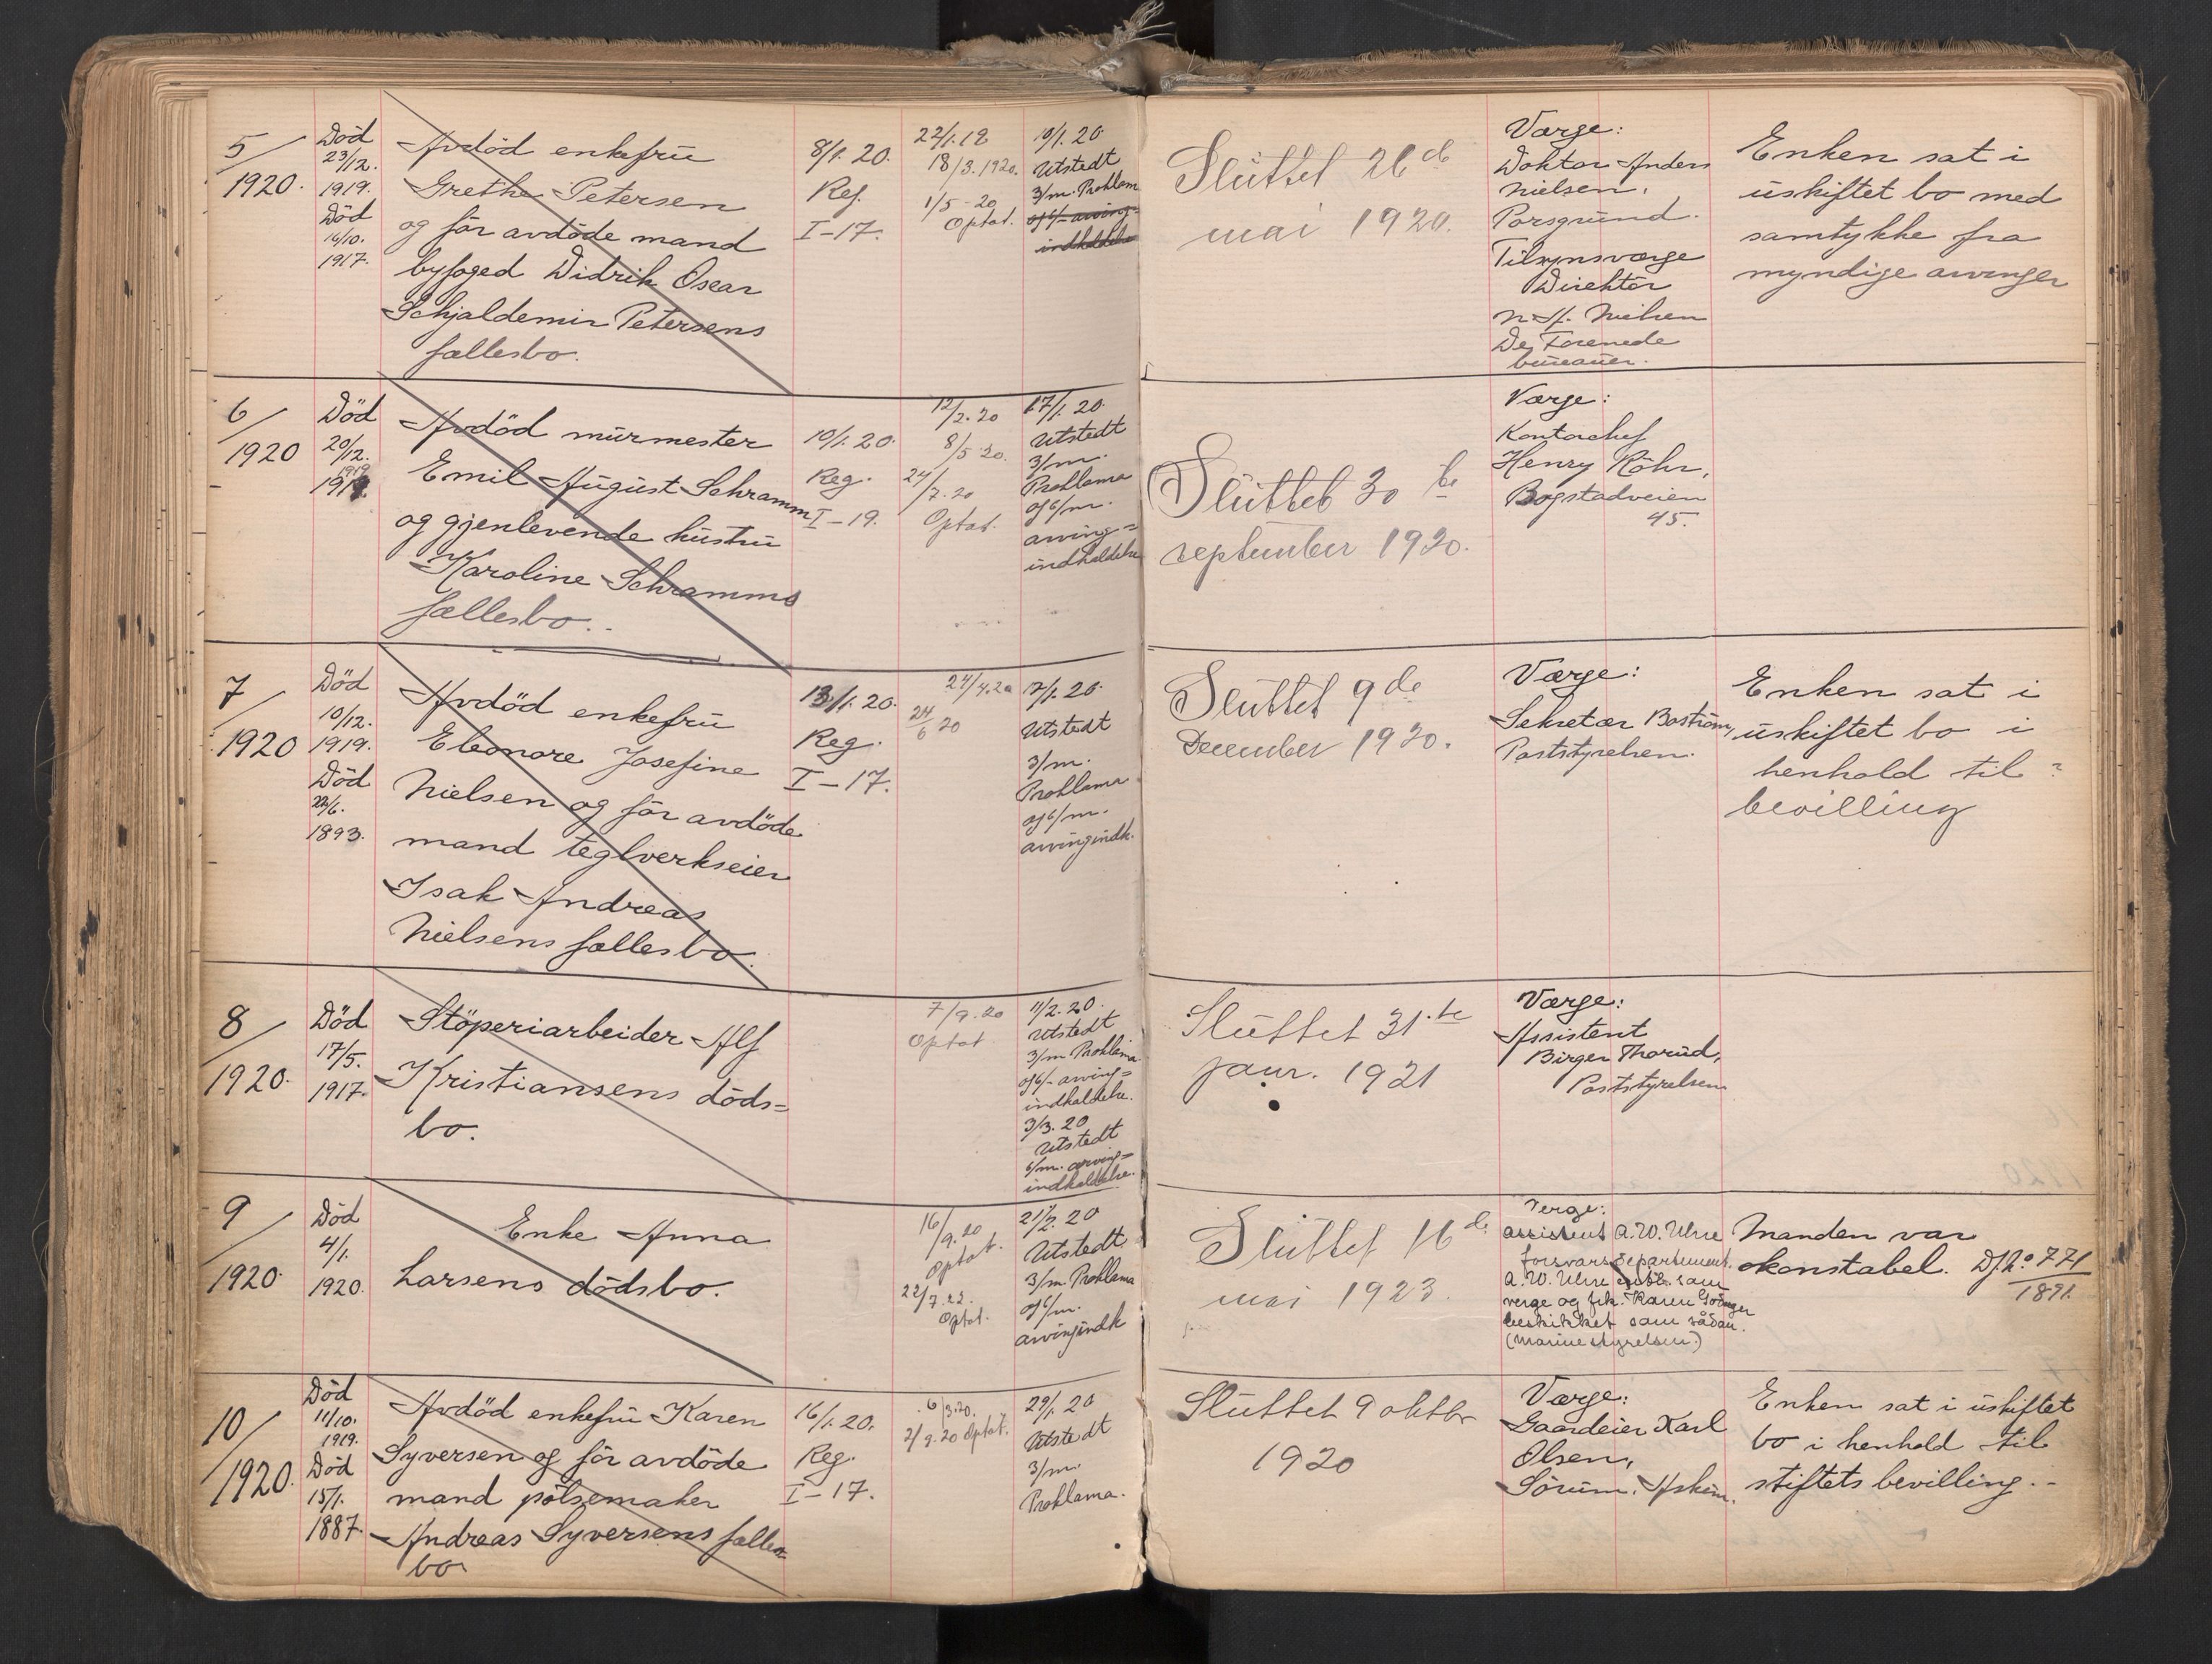 5/
1920.
Död
23/12.
1919.
Död
16/10.
1917.
Avdöd enkefru
Grethe Petersen
og för avdöde mand
byfoged Didrik Oscar
Schjaldemir Petersens
fællesbo.
8/1. 20.
Reg.
I-17.
22/1. 18
18/3. 1920.
1/5-20
Optat.
10/1. 20.
Utstedt
3/m. Proklam
og 6/- arving=
indkaldelse
Sluttet 26de
mai 1920.
Værge:
Doktor Anders
Nielsen,
Porsgrund.
Tilsynsværge
Direktör
N. A. Nielsen
De Forenede
bureauer.
Enken sat i
uskiftet bo med
samtykke fra
myndige arvinger
6/
1920
Död
20/12.
1919
Avdöd murmester
Emil August Schramm
og gjenlevende hustru
Karoline Schramms
fællesbo.
10/1. 20.
Reg.
I-19.
12/2. 20
8/5 20.
24/7. 20
Optat.
17/1. 20.
Utstedt
3/m.
Proklama
og 6/m.
arving=
indkaldelse
Sluttet 30te
september 1920.
Værge:
Kontorchef
Henry Röhr,
Bogstadveien
45.
7/
1920
Död
10/12.
1919.
Död
22/6.
1893.
Avdöd enkefru
Eleonore Josefine
Nielsen og för avdöde
mand teglverkseier
Isak Andreas
Nielsens fællesbo.
13/1. 20.
Reg.
I-17.
24/4. 20
24/6 20
17/1. 20.
Utstedt
3/m.
Proklama
og 6/m.
arvingindk.
Sluttet 9de
December 1920.
Værge:
Sekretær Boström,
Poststyrelsen.
Enken sat i
uskiftet bo i
henhold til
bevilling
8/
1920.
Död
17/5.
1917.
Stöperiarbeider Alf
Kristiansens döds=
bo.
7/9. 20
Optat
11/2. 20.
Utstedt
3/m Proklama
og 6/- arving=
indkaldelse.
3/3. 20
Utstedt
6/m. arving=
indkaldelse.
Sluttet 31.te
janr. 1921
Værge:
Assistent
Birger Thorud,
Poststyrelsen
9/
1920.
Död
4/1.
1920.
Enke Anna
Larsens dödsbo.
16/9. 20
Optat.
22/7. 22.
Optat.
21/2. 20
Utstedt
3/m. Proklama
og 6/m.
arvingindk
Sluttet 16de
mai 1923.
Verge:
assistent A. W. Uhre
forsvarsdepartement.
A. W. Uhre entl. som
verge og frk. Karen
beskikket som sådan.
(Marinestyrelsen)
Manden var
konstabel. Df. No 771
1891.
10/
1920.
Död
11/10.
1919.
Död
15/1.
1887.
Avdöd enkefru Karen
Syversen og för avdöde
mand pölsemaker
Andreas Syversens fælles
bo
16/1. 20.
Reg.
I-17.
6/3. 20.
2/9. 20 Optat.
29/1. 20
Utstedt
3/m.
Proklama.
Sluttet 9 oktbr
1920
Værge:
Gaardeier Karl
Olsen,
Sörum, Askim.
Enken sat i uskiftet
bo i henhold til
stiftets bevilling.-